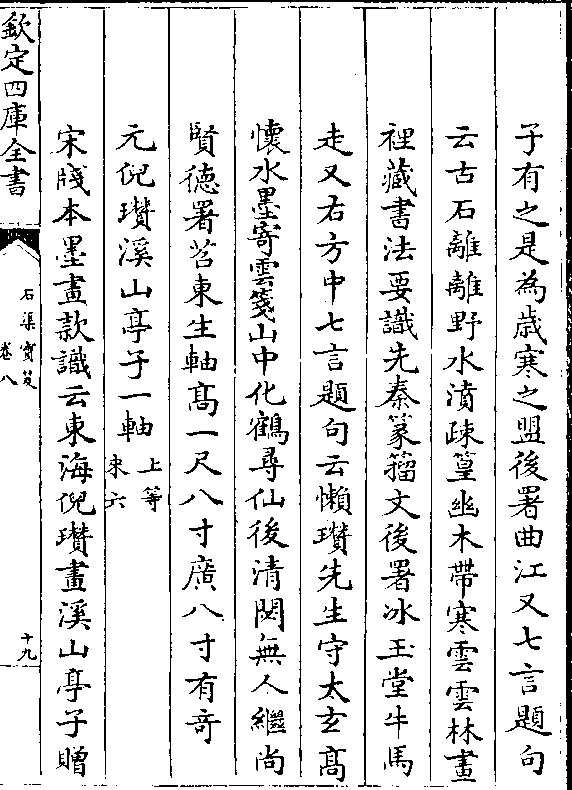 子有之是為歳寒之盟後署曲江又七言題句
云古石離離野水濆疎篁幽木帶寒雲雲林畫
裡藏書法要識先秦篆籀文後署冰玉堂牛馬
走又右方中七言題句云懶瓚先生守太玄髙
懷水墨寄雲箋山中化鶴尋仙後清閟無人繼尚
賢徳署苕東生軸髙一尺八寸廣八寸有竒
元倪瓚溪山亭子一軸 上等 来六
宋牋本墨畫款識云東海倪瓚畫溪山亭子贈
欽定四庫全書
石渠寳笈
卷八
十九